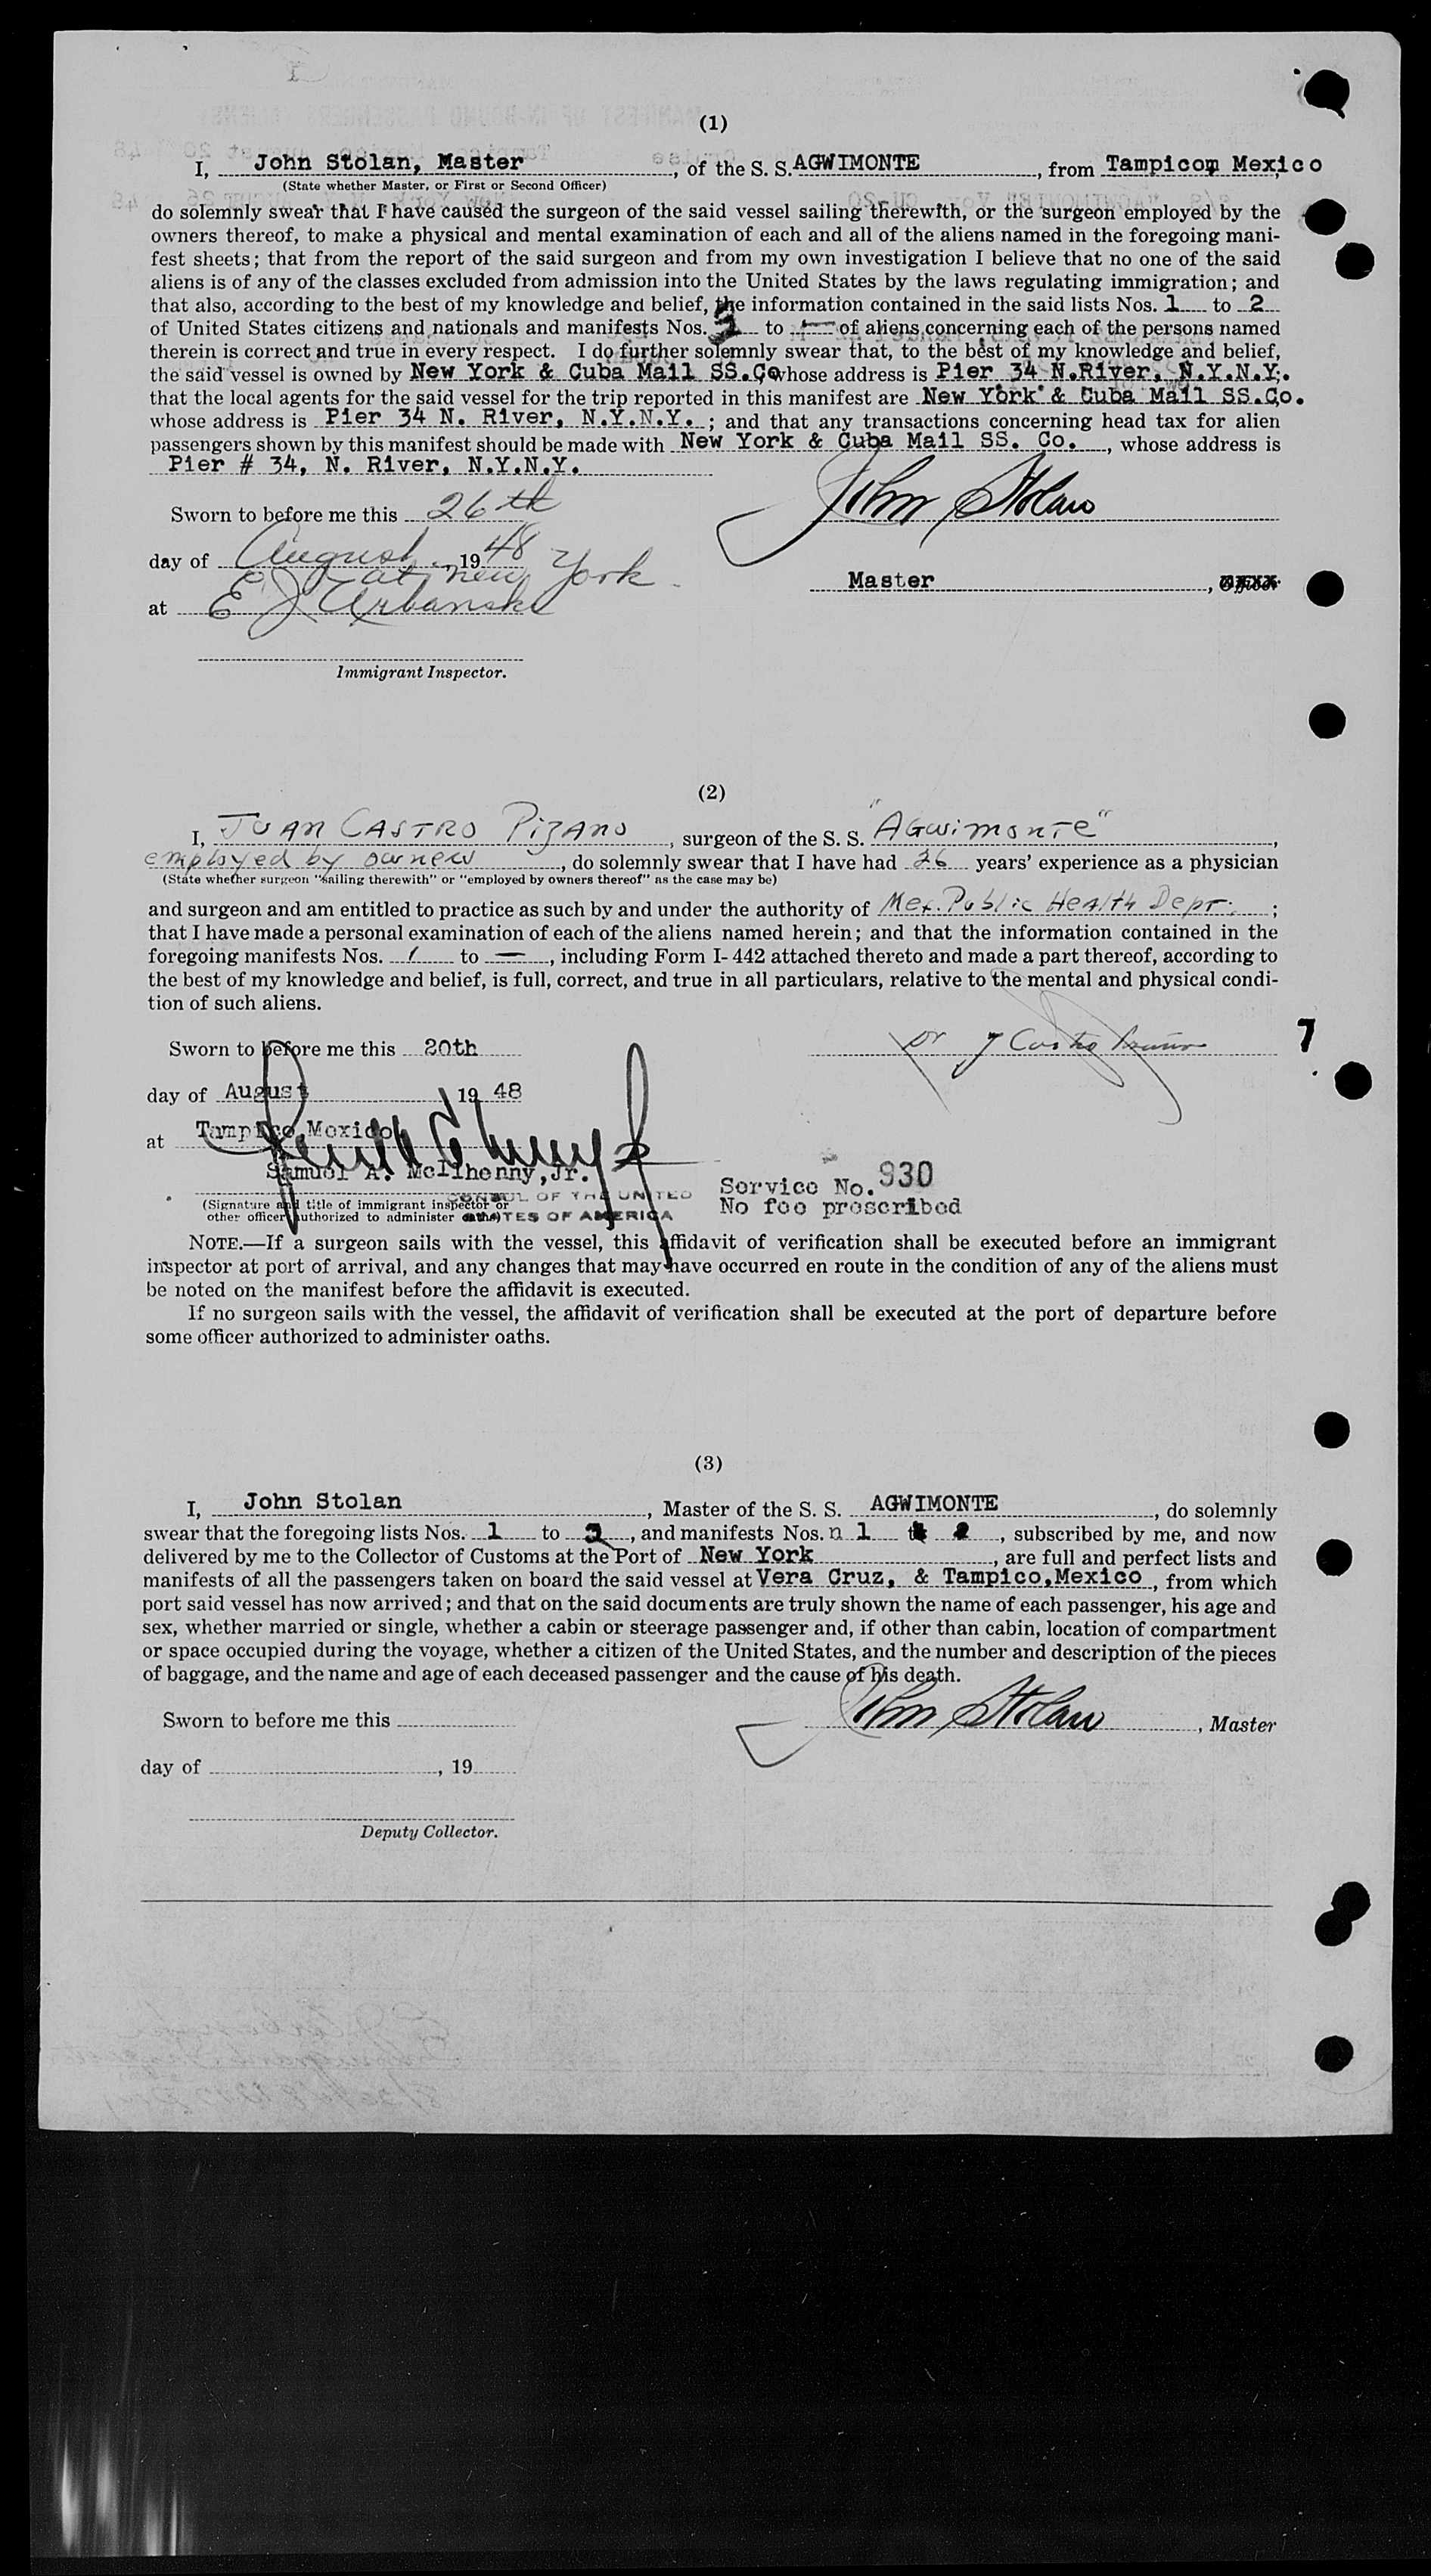 (1)
I, John Stolan, Master, of the S. S. AGWIMONTE, from Tampico, Mexico
(State whether Master, or First or Second Officer)
do solemnly swear that I have caused the surgeon of the said vessel sailing therewith, or the surgeon employed by the
owners thereof, to make a physical and mental examination of each and all of the aliens named in the foregoing mani-
fest sheets; that from the report of the said surgeon and from my own investigation I believe that no one of the said
aliens is of any of the classes excluded from admission into the United States by the laws regulating immigration; and
that also, according to the best of my knowledge and belief, the information contained in the said lists Nos. 1 to 2
of United States citizens and nationals and manifests Nos. to — of aliens concerning each of the persons named
therein is correct and true in every respect. I do further solemnly swear that, to the best of my knowledge and belief,
the said vessel is owned by New York & Cuba Mail SS.Co whose address is Pier 34 N.River, N.Y.N.Y.
that the local agents for the said vessel for the trip reported in this manifest are New York & Cuba Mail SS.Co.
whose address is Pier 34 N. River, N.Y.N.Y. ; and that any transactions concerning head tax for alien
passengers shown by this manifest should be made with New York & Cuba Mail SS. Co., whose address is
Pier # 34, N. River, N.Y.N.Y.
John Stolan
Sworn to before me this 26th
day of August, 1948
at New York
Master, Officer
at E J Urbanski
Immigrant Inspector.
(2)
I, JUAN CASTRO Pizano, surgeon of the S. S. "Agwimonte",
employed by owners, do solemnly swear that I have had 26 years' experience as a physician
(State whether surgeon "sailing therewith" or "employed by owners thereof" as the case may be)
and surgeon and am entitled to practice as such by and under the authority of Mex. Public Health Dept. ;
that I have made a personal examination of each of the aliens named herein; and that the information contained in the
foregoing manifests Nos. 1 to —, including Form I-442 attached thereto and made a part thereof, according to
the best of my knowledge and belief, is full, correct, and true in all particulars, relative to the mental and physical condi-
tion of such aliens.
Dr J Castro Pizano
7
Sworn to before me this 20th
day of August 1948
at Tampico Mexico
Samuel A. McIlhenny, Jr.
CONSUL OF THE UNITED
STATES OF AMERICA
Service No. 930
No fee prescribed
(Signature and title of immigrant inspector or
other officer authorized to administer oaths)
NOTE.—If a surgeon sails with the vessel, this affidavit of verification shall be executed before an immigrant
inspector at port of arrival, and any changes that may have occurred en route in the condition of any of the aliens must
be noted on the manifest before the affidavit is executed.
If no surgeon sails with the vessel, the affidavit of verification shall be executed at the port of departure before
some officer authorized to administer oaths.
(3)
I, John Stolan, Master of the S. S. AGWIMONTE, do solemnly
swear that the foregoing lists Nos. 1 to 2, and manifests Nos. n 1, subscribed by me, and now
delivered by me to the Collector of Customs at the Port of New York, are full and perfect lists and
manifests of all the passengers taken on board the said vessel at Vera Cruz, & Tampico, Mexico, from which
port said vessel has now arrived; and that on the said documents are truly shown the name of each passenger, his age and
sex, whether married or single, whether a cabin or steerage passenger and, if other than cabin, location of compartment
or space occupied during the voyage, whether a citizen of the United States, and the number and description of the pieces
of baggage, and the name and age of each deceased passenger and the cause of his death.
John Stolan, Master
Sworn to before me this
day of , 19
Deputy Collector.